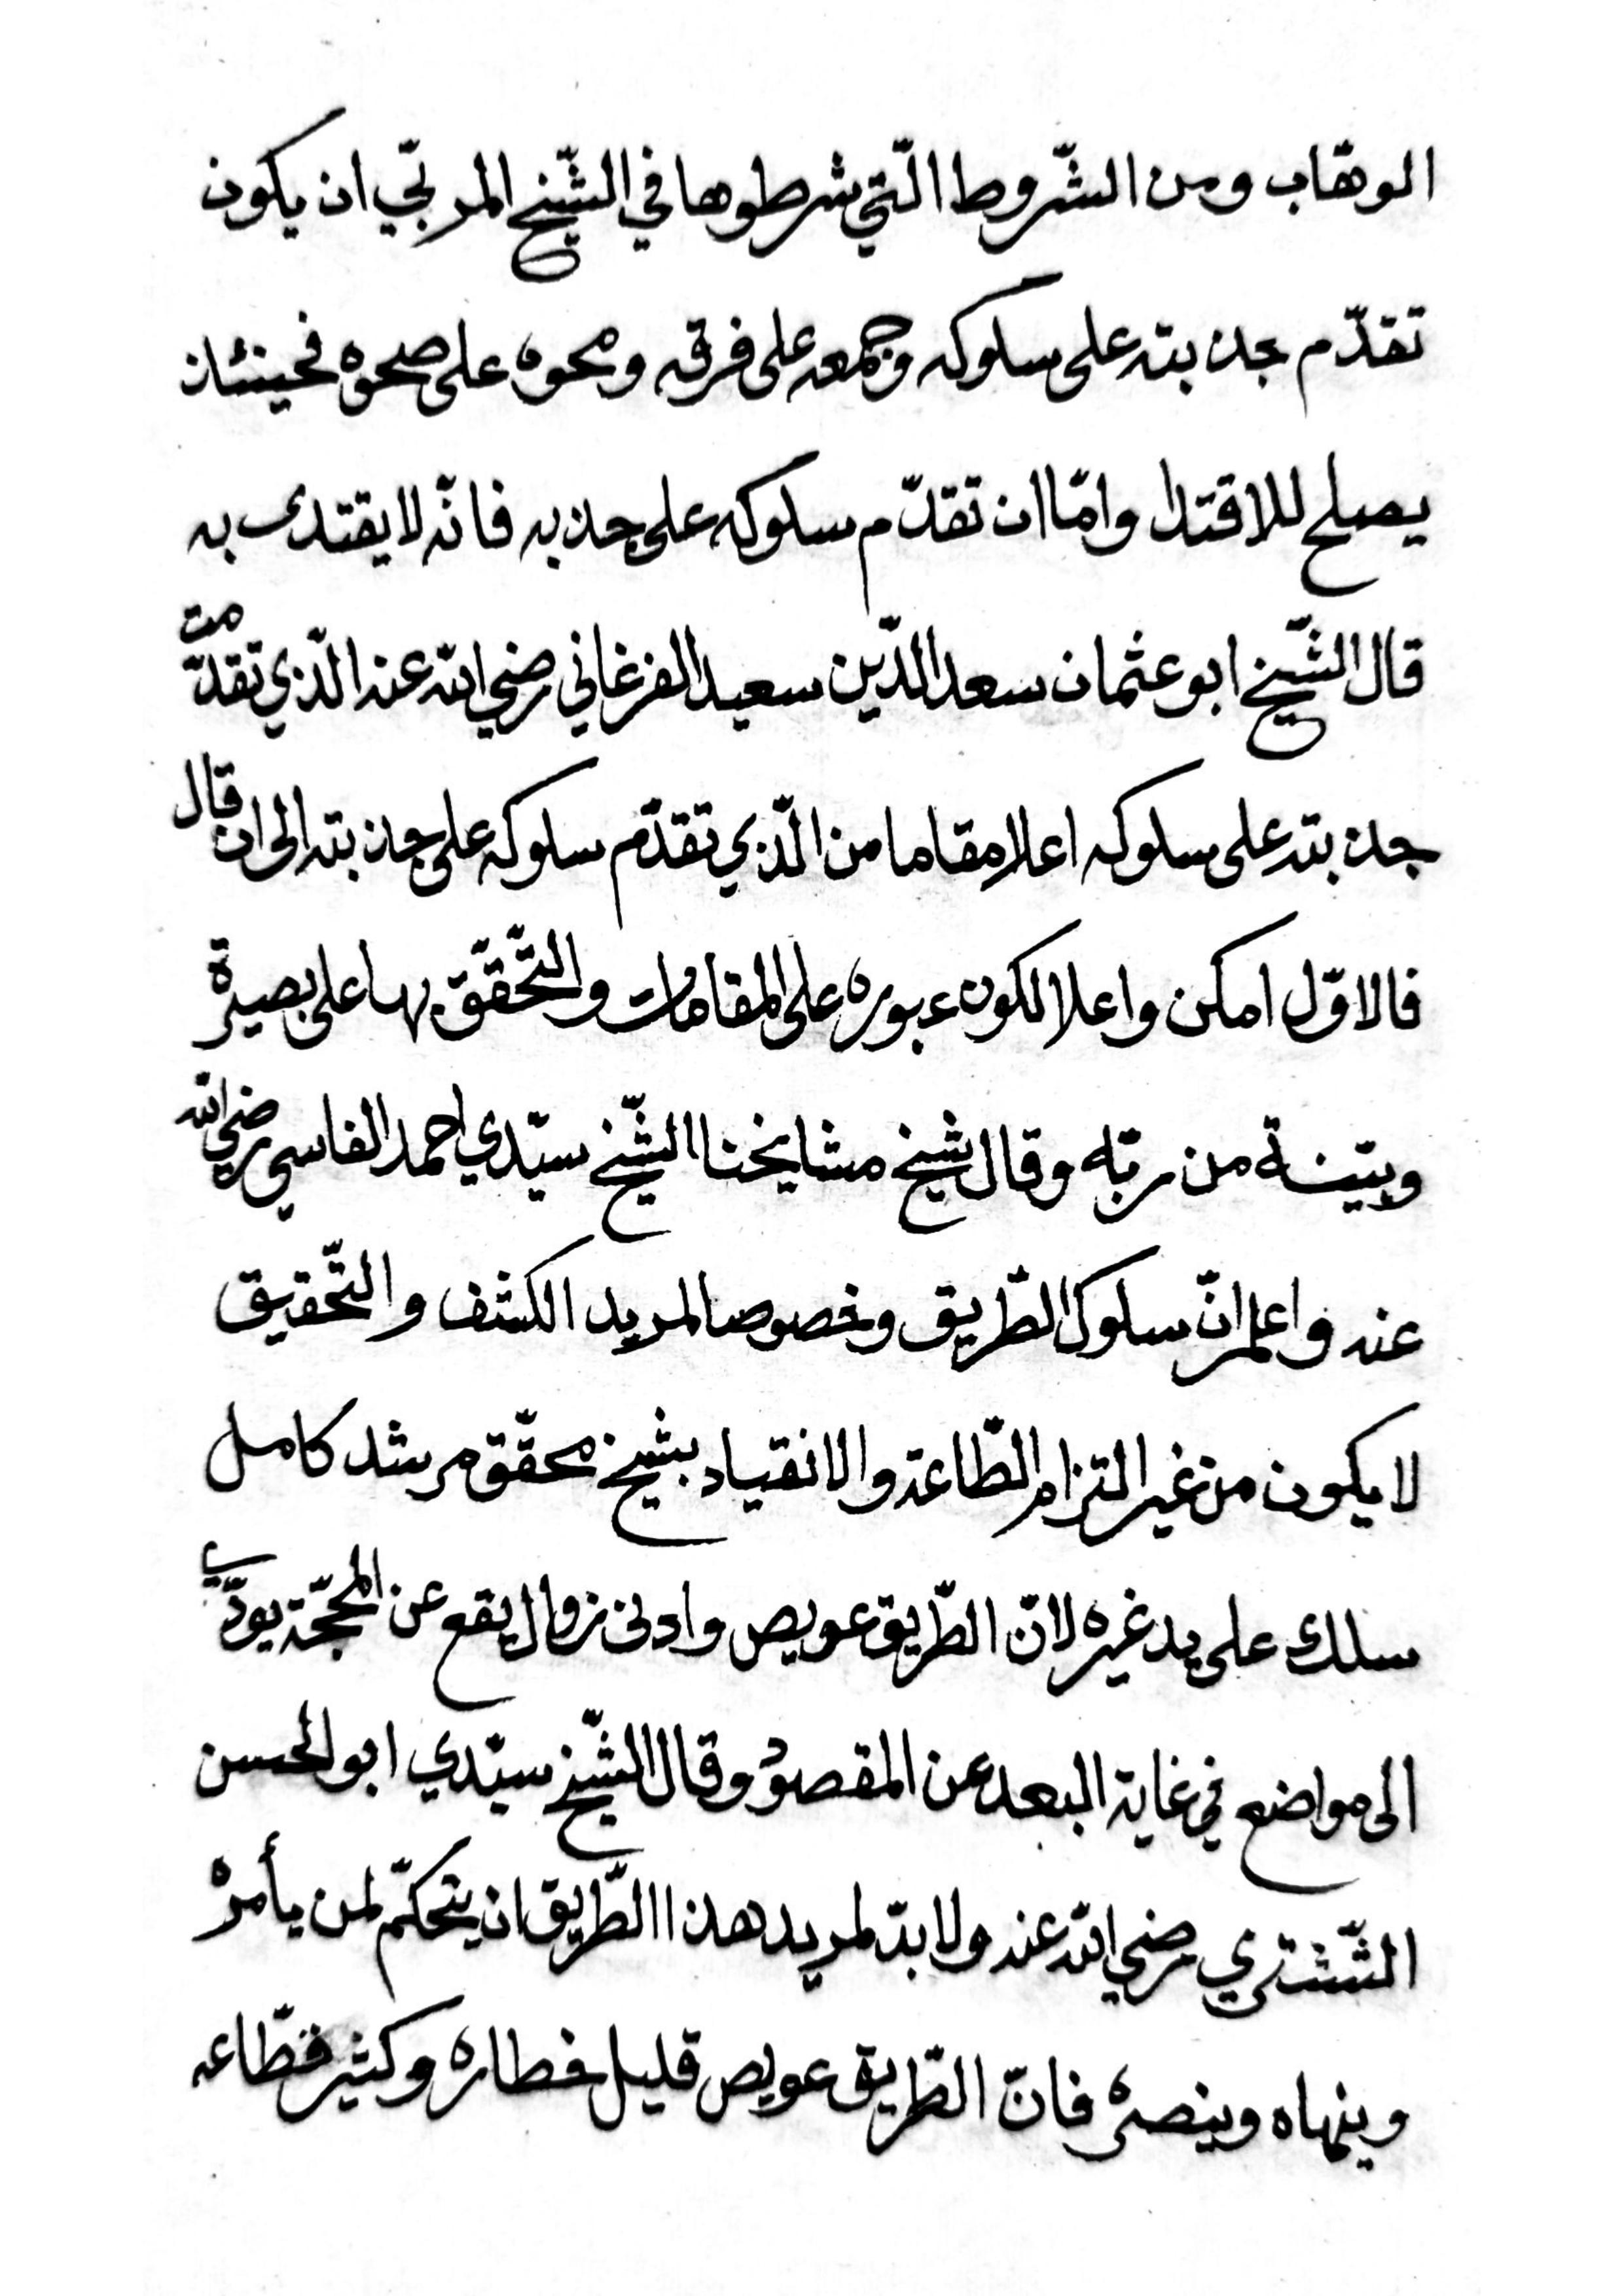 الوهّاب ومن الشّروط الّتي شرطوها في الشّيخ المربّي ان يكون
تقدّم جذبته على سلوكه وجمعه على فرقه ومحوه على صحوه فحينئذ
يصلح للاقتدا وامّا ان تقدّم سلوكه على جذبه فانّه لا يقتدى به
قال الشّيخ ابو عثمان سعد الدّين سعيد الفرغاني رضي الله عنه الّذي تقدّمت
جذبته على سلوكه اعلا مقاما من الّذي تقدّم سلوكه على جذبته الى ان قال
فالاوّل امكن واعلا لكون عبوره على المقامات والتّحقّق بها على بصيرة
وبيّنة من ربّه وقال شيخ مشايخنا الشّيخ سيّدي احمد الفاسي رضي الله
عنه واعلم انّ سلوك الطّريق وخصوصا لمريد الكشف والتّحقيق
لا يكون من غير التزام الطّاعة والانقياد بشيخ محقّق مرشد كامل
سلك على يد غيره لانّ الطّريق عويص وادنى زوال يقع عن المحجّة يودّي
الى مواضع في غاية البعد عن المقصود وقال الشّيخ سيّدي ابو الحسن
الشّشتري رضي الله عنه ولا بدّ لمريد هذا الطّريق ان يتحكّم لمن يأمره
وينهاه وينصره فانّ الطّريق عويص قليل خطاره وكثير قطّاعه